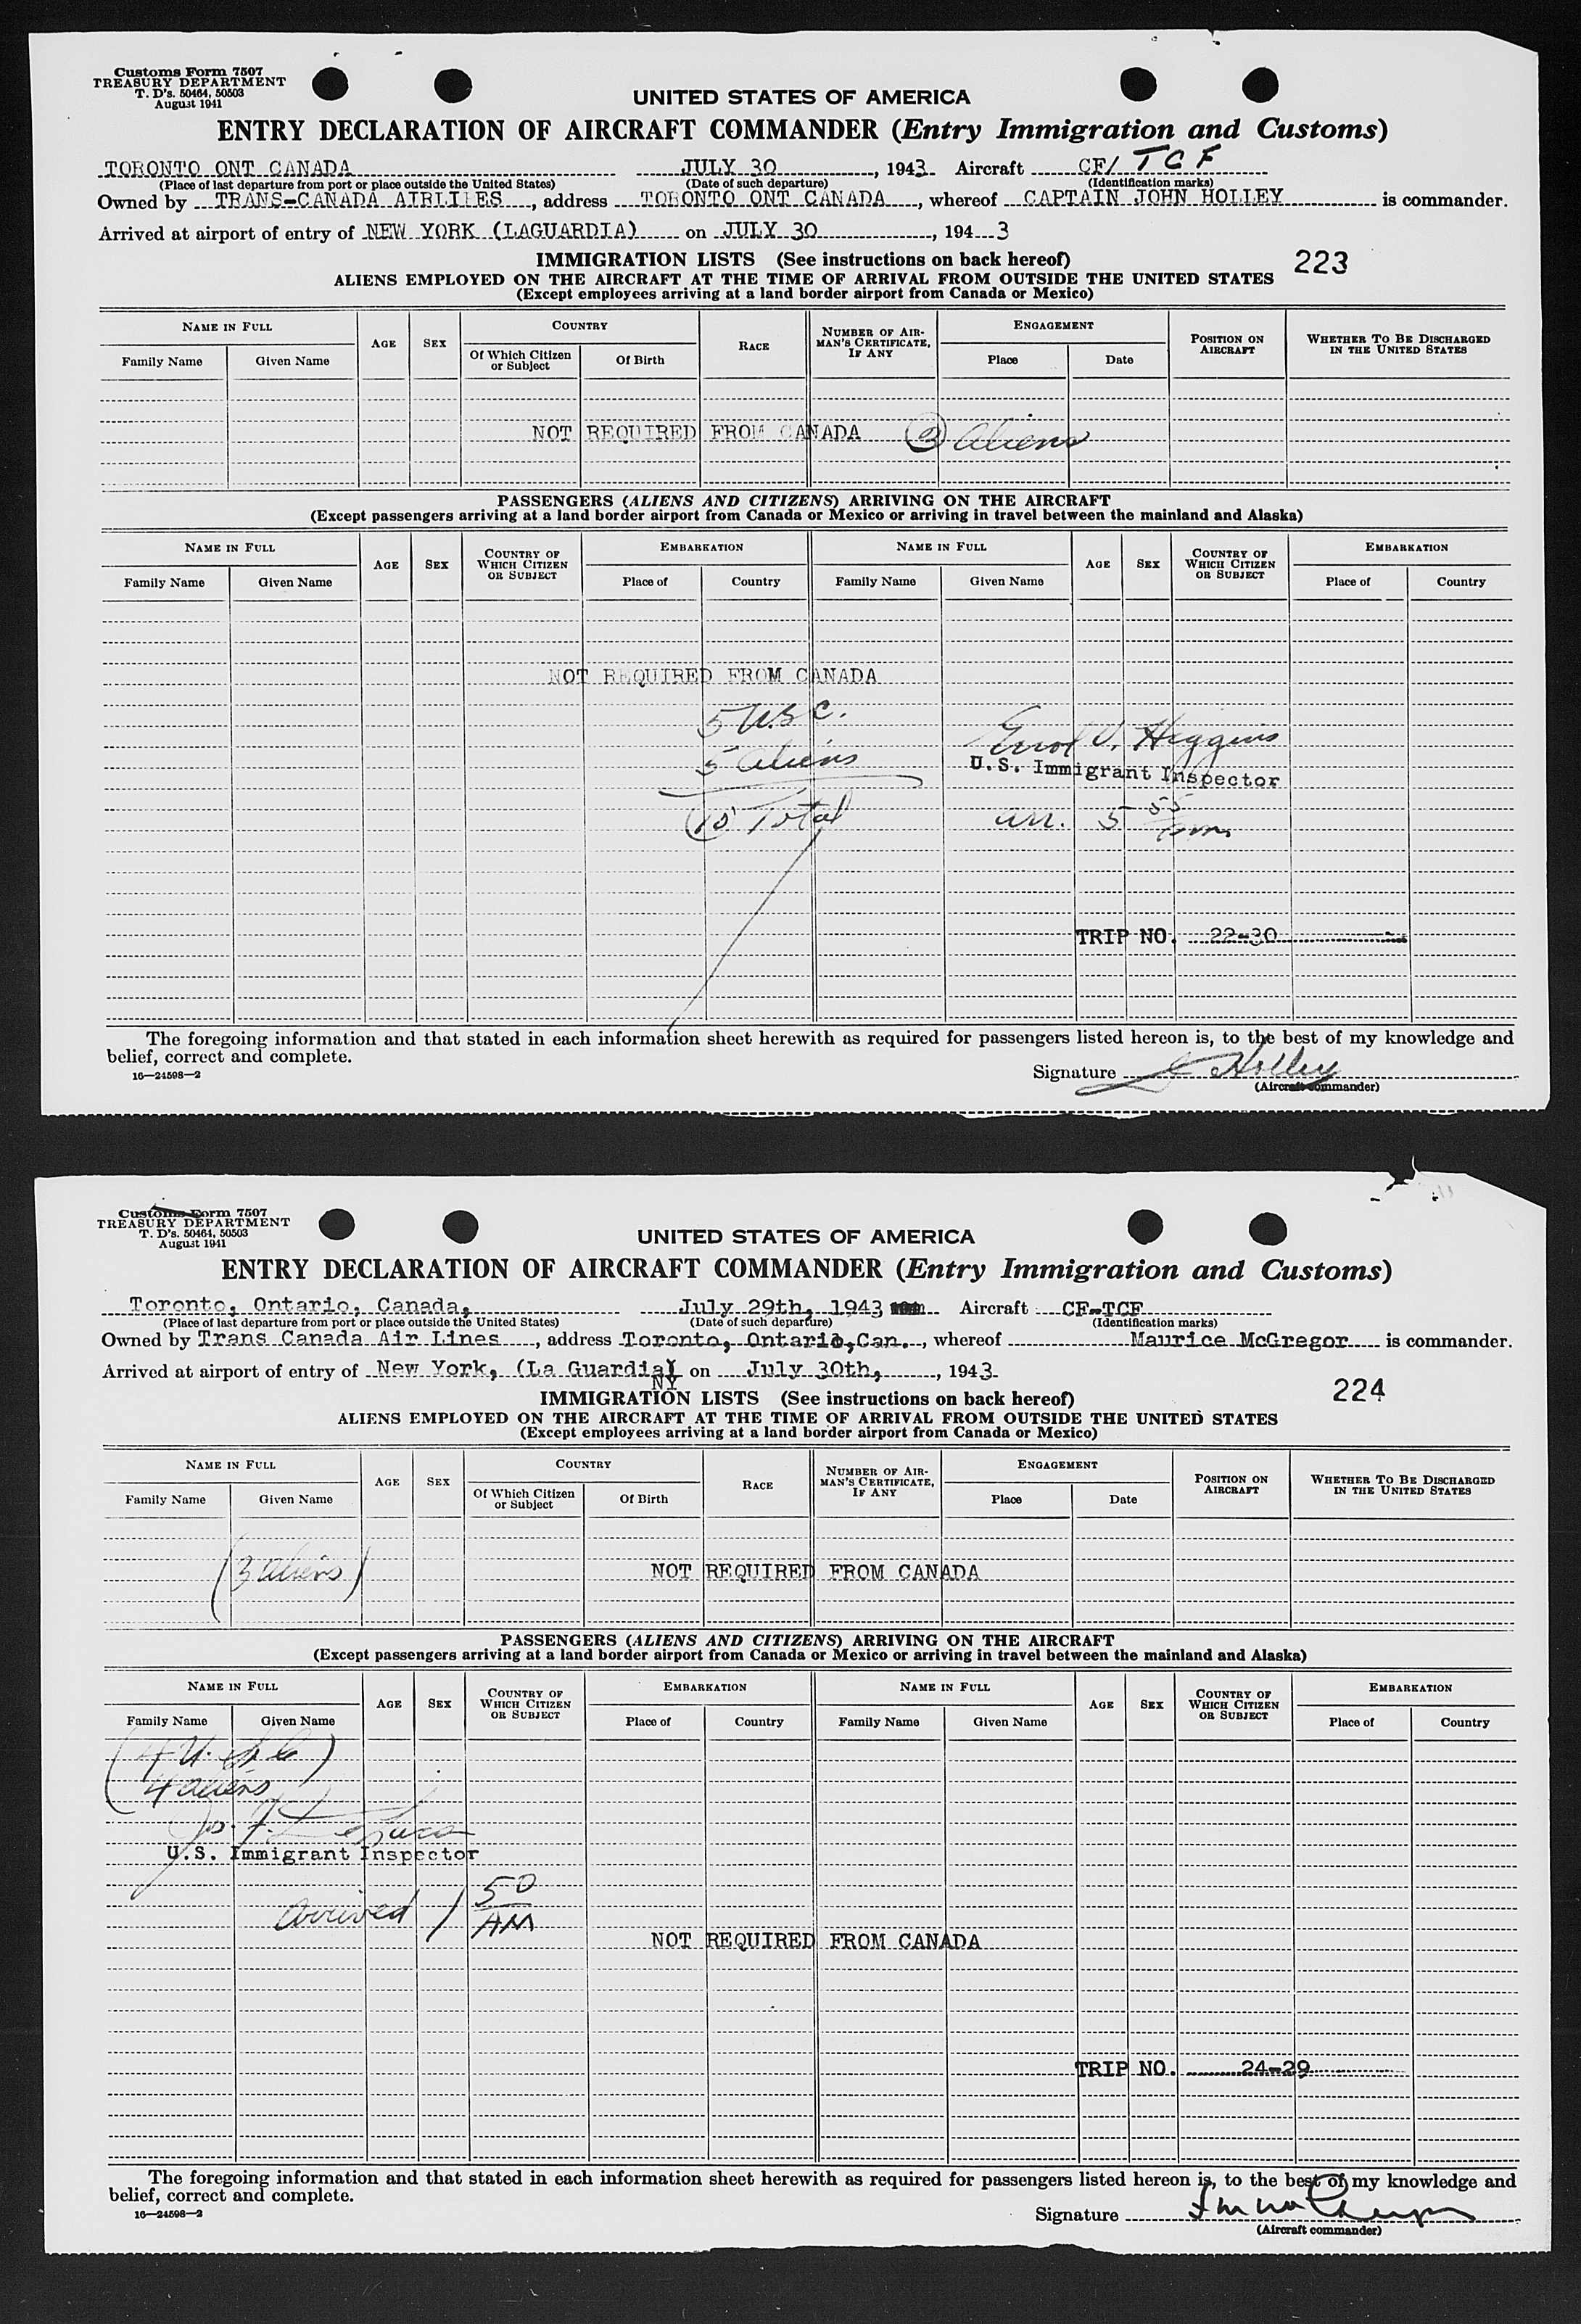 Customs Form 7507
TREASURY DEPARTMENT
T. D's. 50464, 50503
August 1941
UNITED STATES OF AMERICA
ENTRY DECLARATION OF AIRCRAFT COMMANDER (Entry Immigration and Customs)
TORONTO ONT CANADA JULY 30, 1943 Aircraft CF/ TCF
(Place of last departure from port or place outside the United States) (Date of such departure) (Identification marks)
Owned by TRANS-CANADA AIRLINES, address TORONTO ONT CANADA, whereof CAPTAIN JOHN HOLLEY is commander.
Arrived at airport of entry of NEW YORK (LAGUARDIA) on JULY 30, 1943
IMMIGRATION LISTS (See instructions on back hereof) 223
ALIENS EMPLOYED ON THE AIRCRAFT AT THE TIME OF ARRIVAL FROM OUTSIDE THE UNITED STATES
(Except employees arriving at a land border airport from Canada or Mexico)
NAME IN FULL AGE SEX COUNTRY RACE NUMBER OF AIRMAN'S CERTIFICATE, IF ANY ENGAGEMENT POSITION ON AIRCRAFT WHETHER TO BE DISCHARGED IN THE UNITED STATES
Family Name Given Name Of Which Citizen or Subject Of Birth Place Date
NOT REQUIRED FROM CANADA 3 Aliens
PASSENGERS (ALIENS AND CITIZENS) ARRIVING ON THE AIRCRAFT
(Except passengers arriving at a land border airport from Canada or Mexico or arriving in travel between the mainland and Alaska)
NAME IN FULL AGE SEX COUNTRY OF WHICH CITIZEN OR SUBJECT EMBARKATION NAME IN FULL AGE SEX COUNTRY OF WHICH CITIZEN OR SUBJECT EMBARKATION
Family Name Given Name Place of Country Family Name Given Name Place of Country
NOT REQUIRED FROM CANADA
5 U.S.C.
5 Aliens Errol V. Higgins
U.S. Immigrant Inspector
10 Total arr. 5 55 pm
TRIP NO. 22-30
The foregoing information and that stated in each information sheet herewith as required for passengers listed hereon is, to the best of my knowledge and
belief, correct and complete.
16—24598—2
Signature J Holley
(Aircraft commander)
Customs Form 7507
TREASURY DEPARTMENT
T. D's. 50464, 50503
August 1941
UNITED STATES OF AMERICA
ENTRY DECLARATION OF AIRCRAFT COMMANDER (Entry Immigration and Customs)
Toronto, Ontario, Canada, July 29th, 1943 Aircraft CF-TCF
(Place of last departure from port or place outside the United States) (Date of such departure) (Identification marks)
Owned by Trans Canada Air Lines, address Toronto, Ontario, Can., whereof Maurice McGregor is commander.
Arrived at airport of entry of New York, (La Guardia) NY on July 30th, 1943
IMMIGRATION LISTS (See instructions on back hereof) 224
ALIENS EMPLOYED ON THE AIRCRAFT AT THE TIME OF ARRIVAL FROM OUTSIDE THE UNITED STATES
(Except employees arriving at a land border airport from Canada or Mexico)
NAME IN FULL AGE SEX COUNTRY RACE NUMBER OF AIRMAN'S CERTIFICATE, IF ANY ENGAGEMENT POSITION ON AIRCRAFT WHETHER TO BE DISCHARGED IN THE UNITED STATES
Family Name Given Name Of Which Citizen or Subject Of Birth Place Date
(3 aliens) NOT REQUIRED FROM CANADA
PASSENGERS (ALIENS AND CITIZENS) ARRIVING ON THE AIRCRAFT
(Except passengers arriving at a land border airport from Canada or Mexico or arriving in travel between the mainland and Alaska)
NAME IN FULL AGE SEX COUNTRY OF WHICH CITIZEN OR SUBJECT EMBARKATION NAME IN FULL AGE SEX COUNTRY OF WHICH CITIZEN OR SUBJECT EMBARKATION
Family Name Given Name Place of Country Family Name Given Name Place of Country
(4 U.S.C)
4 aliens
Jos. F.
U.S. Immigrant Inspector
Arrived 1 50 AM
NOT REQUIRED FROM CANADA
TRIP NO. 24-29
The foregoing information and that stated in each information sheet herewith as required for passengers listed hereon is, to the best of my knowledge and
belief, correct and complete.
16—24598—2
Signature
(Aircraft commander)